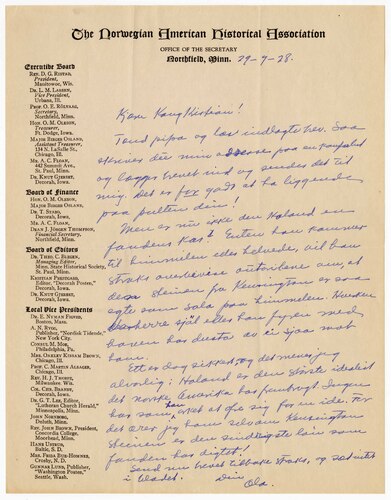 The Norwegian American Historical Association
OFFICE OF THE SECRETARY
Northfield, Minn. 29-9-28.
Executive Board
REV. D. G. RISTAD,
President,
Manitowoc, Wis.
DR. L. M. LARSEN,
Vice President,
Urbana, Ill.
PROF. O. E. RÖLVAAG,
Secretary,
Northfield, Minn.
HON. O. M. OLESON,
Treasurer,
Ft. Dodge, Iowa.
MAJOR BIRGER OSLAND,
Assistant Treasurer,
134 N. LaSalle St.,
Chicago, Ill.
MR. A. C. FLOAN,
442 Summit Ave.,
St. Paul, Minn.
DR. KNUT GJERSET,
Decorah, Iowa.
Board of Finance
HON. O. M. OLESON,
MAJOR BIRGER OSLAND,
DR. T. STABO,
Decorah, Iowa.
MR. A. C. FLOAN,
DEAN J. JÖRGEN THOMPSON,
Financial Secretary,
Northfield, Minn.
Board of Editors
DR. THEO. C. BLEGEN,
Managing Editor,
Minn. State Historical Society,
St. Paul, Minn.
KRISTIAN PRESTGARD,
Editor, "Decorah Posten,"
Decorah, Iowa.
DR. KNUT GJERSET,
Decorah, Iowa.
Local Vice Presidents
Boston, Mass.
A. N. RYGG,
Publisher, "Nordisk Tidende,"
New York City.
CONSUL M. MOE,
Philadelphia, Pa.
Chicago, Ill.
Chicago, Ill.
REV. H. J. THORPE,
Milwaukee, Wis.
Decorah, Iowa.
DR. G. T. LEE, Editor,
"Lutheran Church Herald,"
Minneapolis, Minn.
Duluth, Minn.
REV. JOHN BROWN, President,
Concordia College,
Moorhead, Minn.
Hanford, Calif.
GUNNAR LUND, Publisher,
"Washington Posten,"
Seattle, Wash.
Kjære Kong Kristian!
Tænd pipa og læs indlagte brev. Saa
skriver du min adresse paa en konvolut
og lægger brevet ind og sender det til
mig. Det er for godt at ha liggende
paa pulten din!
Men er nu ikke den Holand en
fandens kar! Enten han kommer
til himmelen eller helvede, vil han
straks overbevise autoritetene om, at
steinen fra Kensington er saa
egte som sola paa himmelen.
sjæl eller han fyren med
hoven har
ham.
Ett er dog sikkert, og det mener jeg
alvorlig: Holand er den største idealist
det norske Amerika har frembragt. Ingen
har som han ofre sig for en ide. For
det ærer jeg ham selv om Kensington
steinen er den løin som
fanden har digtet!
Send mig brevet tilbake straks, og
i bladet. Din
Ola.